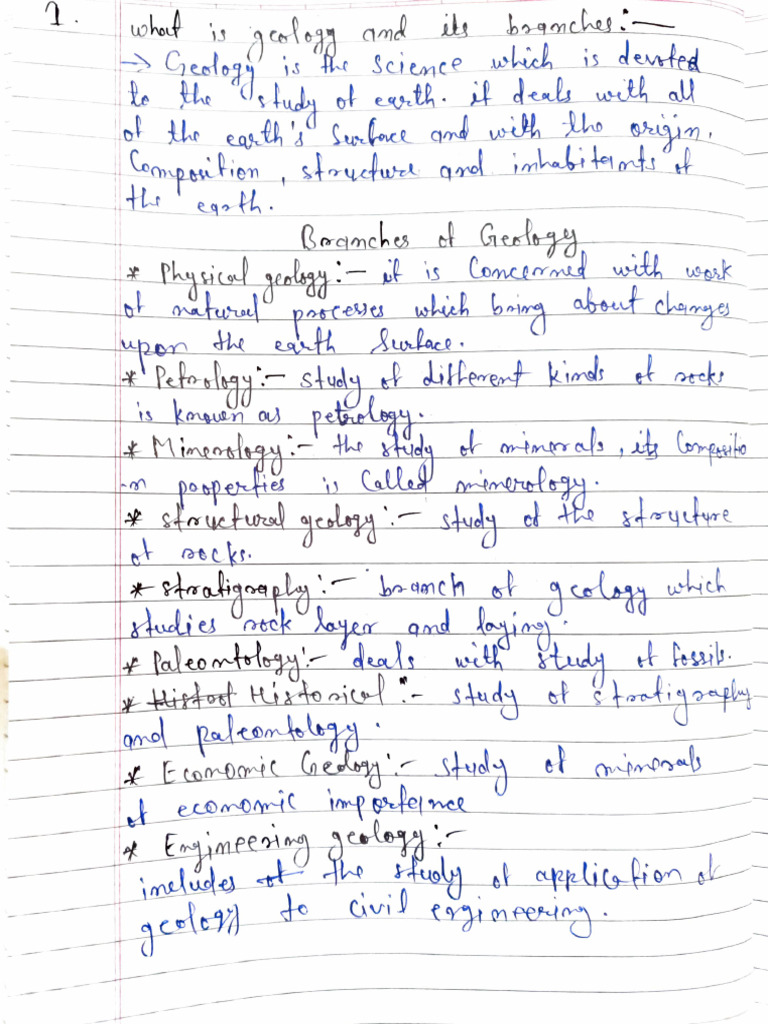 1.
what is geology and its branches:-
→ Geology is the science which is devoted
to the study of earth. it deals with all
of the earth's surface and with the origin.
Composition, structure and inhabitants of
the earth.
Branches of Geology
* Physical geology:- it is Concerned with work
of natural processes which bring about changes
upon the earth surface.
* Petrology:- study of different kinds of rocks
is known as petrology.
* Minerology:- the study of minerals, its Compositio
-n properties is called minerology.
* structural geology:- study of the structure
of rocks.
* stratigraphy:- branch of geology which
studies rock layer and laying.
* Paleontology:- deals with study of fossils.
* Histoof Historical:- study of stratigraphy
and paleontology.
* Economic Geology:- study of minerals
of economic importance
* Engineering geology:-
includes of the study of application of
geology to civil engineering.